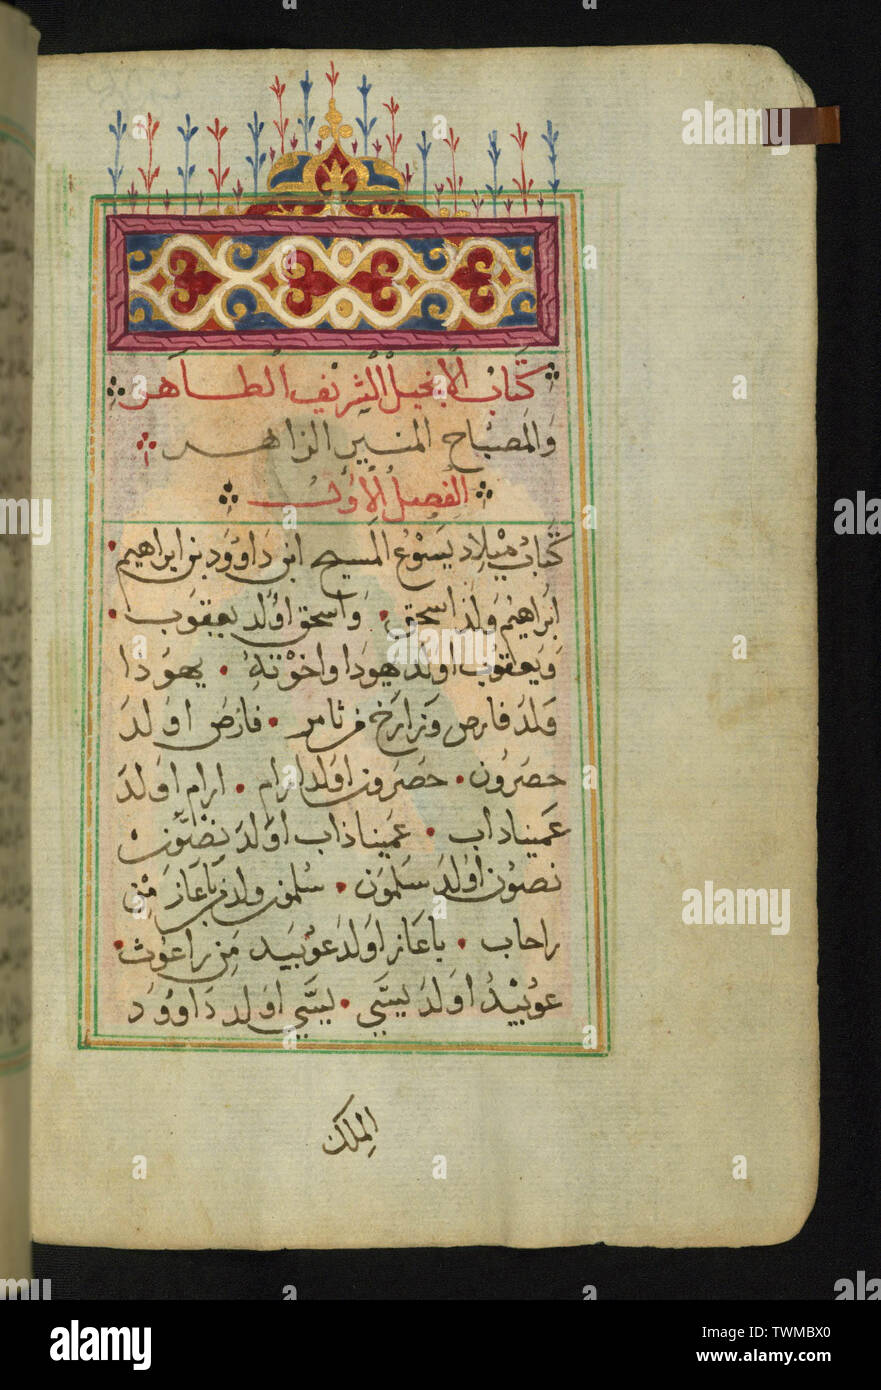 كتاب الانجيل الشريف الطاهر
والمصباح المنير الزاهر
الفصل الاول
كتاب ميلاد يسوع المسيح ابن داوود بن ابراهيم
ابراهيم ولد اسحق واسحق اولد يعقوب
ويعقوب اولد يهودا واخوته يهوذا
ولد فارص وزارخ من ثامر فارص اولد
حصرون حصرون اولد ارام ارام اولد
عميناداب عميناداب اولد نصون
نصون اولد سلمون سلمون ولد باعاز من
راحاب باعاز اولد عوبيد من راعوث
عوبيد اولد يسي يسي اولد داوود
الملك
alamy
Image ID: TWMBX0
www.alamy.com